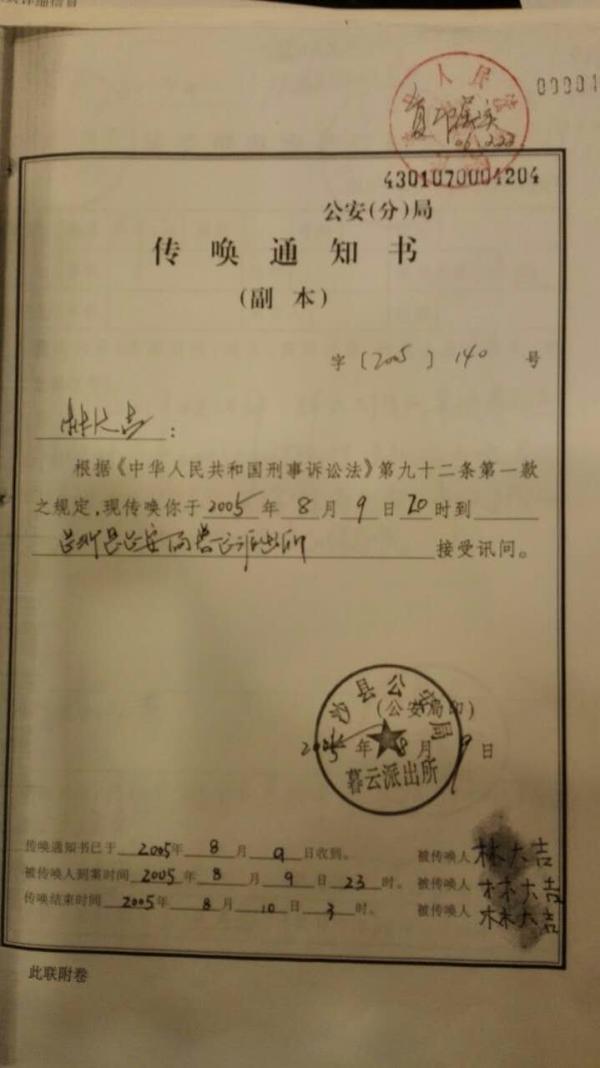 人民
复印属实
06.2.22
00001
4301070004204
公安(分)局
传唤通知书
(副本)
字〔2005〕140号
林大吉:
根据《中华人民共和国刑事诉讼法》第九十二条第一款
之规定,现传唤你于2005年8月9日20时到
长沙县公安局暮云派出所接受讯问。
长沙县公安局
(公安局印)
2005年8月9日
暮云派出所
传唤通知书已于2005年8月9日收到。 被传唤人林大吉
被传唤人到案时间2005年8月9日23时。 被传唤人林大吉
传唤结束时间2005年8月10日3时。 被传唤人林大吉
此联附卷